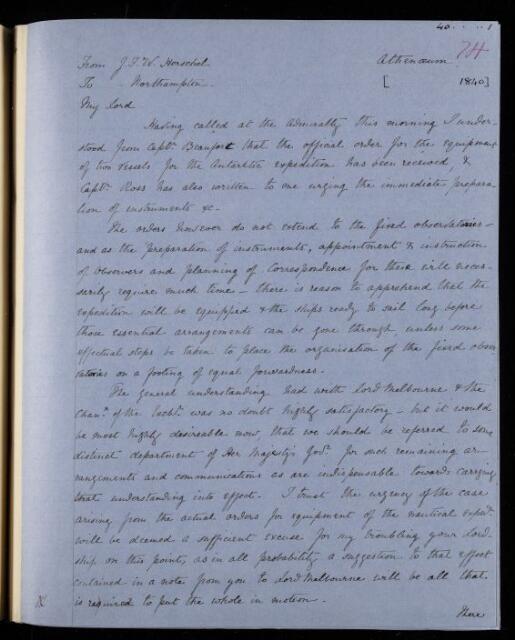 40 . . . . 1
From J.F.W. Herschel. Athenæum. 74
To Northampton. [ 1840]
My Lord
Having called at the Admiralty this morning I under-
stood from Captn. Beaufort that the official order for the equipment
of two vessels for the Antarktic expedition has been received, &
Captn. Ross has also written to me urging the immediate prepara-
tion of instruments &c.-
The orders however do not extend to the fixed observatories -
and as the preparation of instruments, appointment & instruction
of Observers and planning of Correspondence for these will neces-
sarily require much time - there is reason to apprehend that the
expedition will be equipped & the ships ready to sail long before
those essential arrangements can be gone through, unless some
effectual steps be taken to place the organisation of the fixed obser-
vatories on a footing of equal forwardness.
The general understanding had with Lord Melbourne & the
Chanr. of the Exchr. was no doubt highly satisfactory - but it would
be most highly desireable now, that we should be referred to some
distinct department of Her Majesty's Govt. for such remaining ar-
rangements and communications as are indispensable towards carrying
that understanding into effect. I trust the urgency of the case
arising from the actual orders for equipment of the nautical expedn.
will be deemed a sufficient excuse for my troubling your Lord-
ship on this point, as in all probability a suggestion to that effect
contained in a note from you to Lord Melbourne will be all that
is required to put the whole in motion.
There